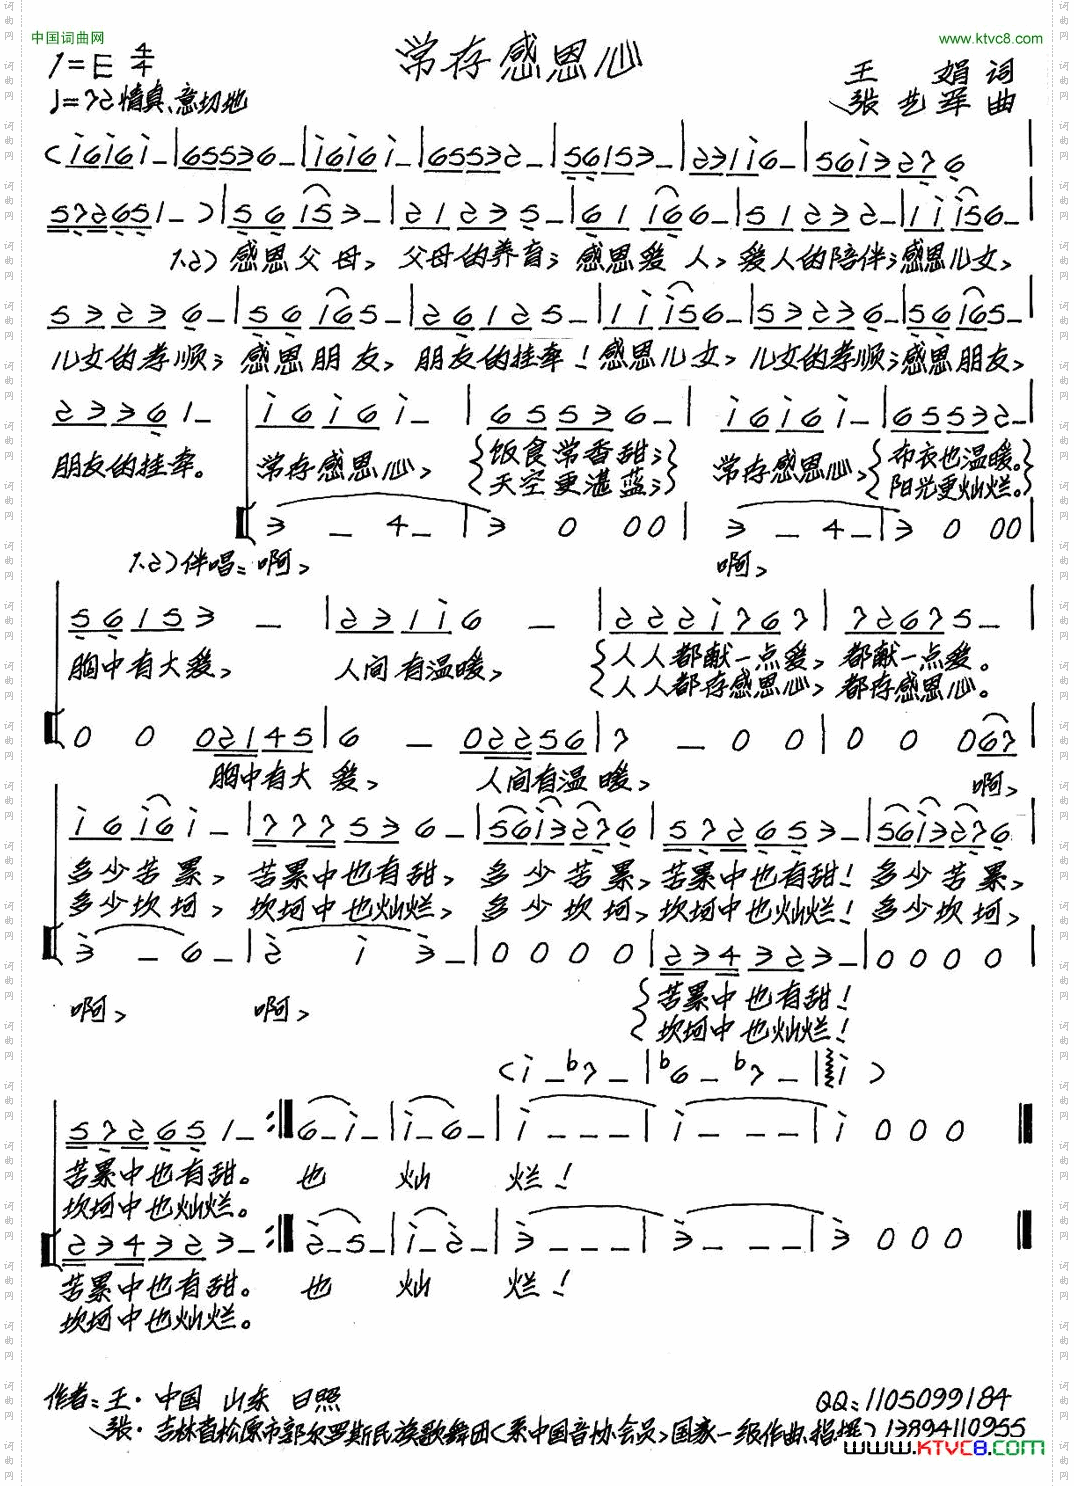 中国词曲网
www.ktvc8.com
常存感恩心
1=E 4/4
王娟 词
♩=72 情真、意切地
张艺军 曲
(i6i6i-|65536-|i6i6i-|65532-|56153-|2311i6-|56i3276|
572651-)|56i53-|212235-|61i66-|51232-|1ii56-|
1.2)感恩父母,父母的养育;感恩爱人,爱人的陪伴;感恩儿女,
53236-|56i65-|26125-|1ii56-|53236-|56i65-|
儿女的孝顺;感恩朋友,朋友的挂牵!感恩儿女,儿女的孝顺;感恩朋友,
23361-|i6i6i-|65536-|i6i6i-|65532-|
朋友的挂牵。常存感恩心,{饭食常香甜;}常存感恩心,{布衣也温暖。}
{天空更湛蓝;} {阳光更灿烂。}
3-4-|3000|3-4-|3000|
1.2)伴唱:啊, 啊,
56153-|231i6-|222i767|72675-|
胸中有大爱,人间有温暖,{人人都献一点爱,都献一点爱。
{人人都存感恩心,都存感恩心。
0002145|6-02256|7-00|00067|
胸中有大爱,人间有温暖, 啊,
i6i6i-|777536-|56i3276|572653-|56i3276|
多少苦累,苦累中也有甜,多少苦累,苦累中也有甜!多少苦累,
多少坎坷,坎坷中也灿烂,多少坎坷,坎坷中也灿烂!多少坎坷,
3-6-|2i3-|0000|234323-|0000|
啊, 啊, {苦累中也有甜!
{坎坷中也灿烂!
(i-b7-|b6-b7-|i)
572651-:‖6-i-|i-6-|i---|i---|i000‖
苦累中也有甜。也灿烂!
坎坷中也灿烂。
234323-:‖2-5-|i-2-|3---|3---|3000‖
苦累中也有甜。也灿烂!
坎坷中也灿烂。
作者:王·中国 山东 日照
QQ:1105099184
张·吉林省松原市郭尔罗斯民族歌舞团(系中国音协会员,国家一级作曲、指挥)13894110955
www.KTVC8.com